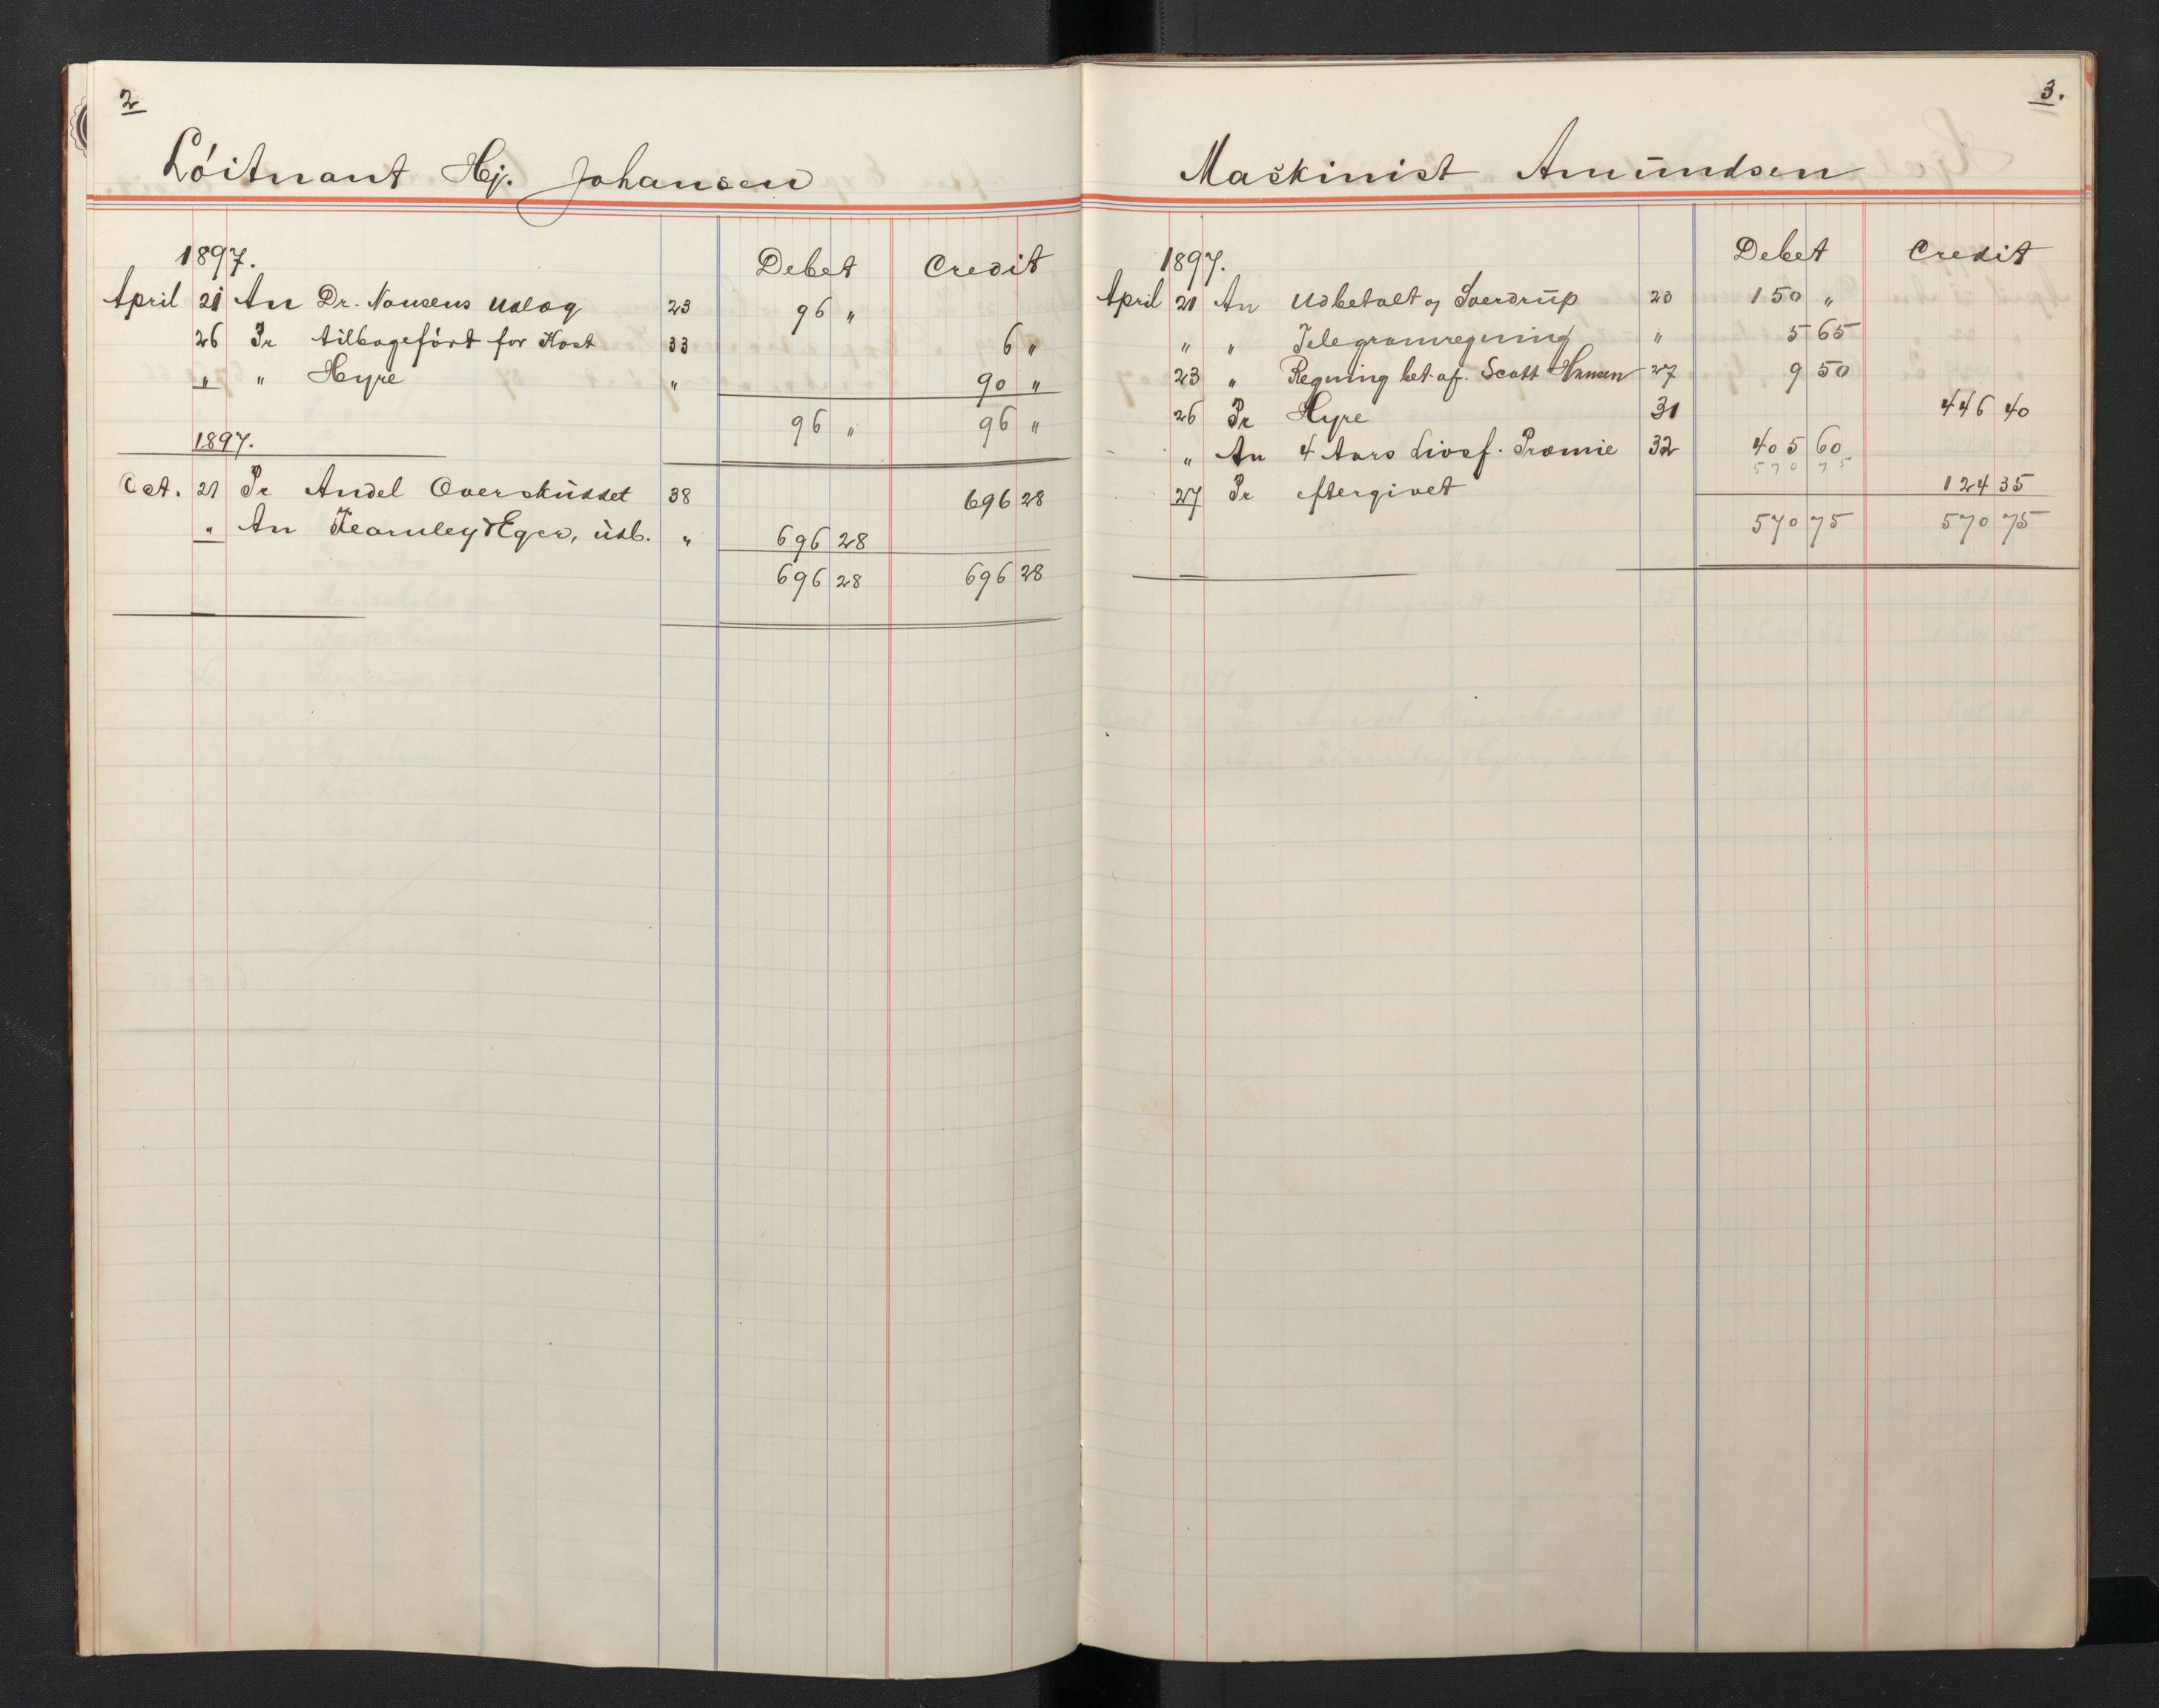 2
Löitnant Hj. Johansen
1897.
Debet Credit
April 21 An Dr. Nansens Udlæg 23 96 "
26 Pr tilbageført for Kost 33 6 "
" " Hyre " 90 "
96 " 96 "
1897.
Oct. 21 Pr Andel Overskuddet 38 696 28
" An Fearnley & Eger, udb. " 696 28
696 28 696 28
3.
Maskinist Amundsen
1897.
Debet Credit
April 21 An Udbetalt af Sverdrup 23 150 "
" " Telegramregning " 5 65
23 " Regning bet. af. Scott Hansen 27 9 50
26 Pr Hyre 31 446 40
" An 4 Aars Livsf. Præmie 32 405 60
570 75
27 Pr eftergivet 124 35
570 75 570 75